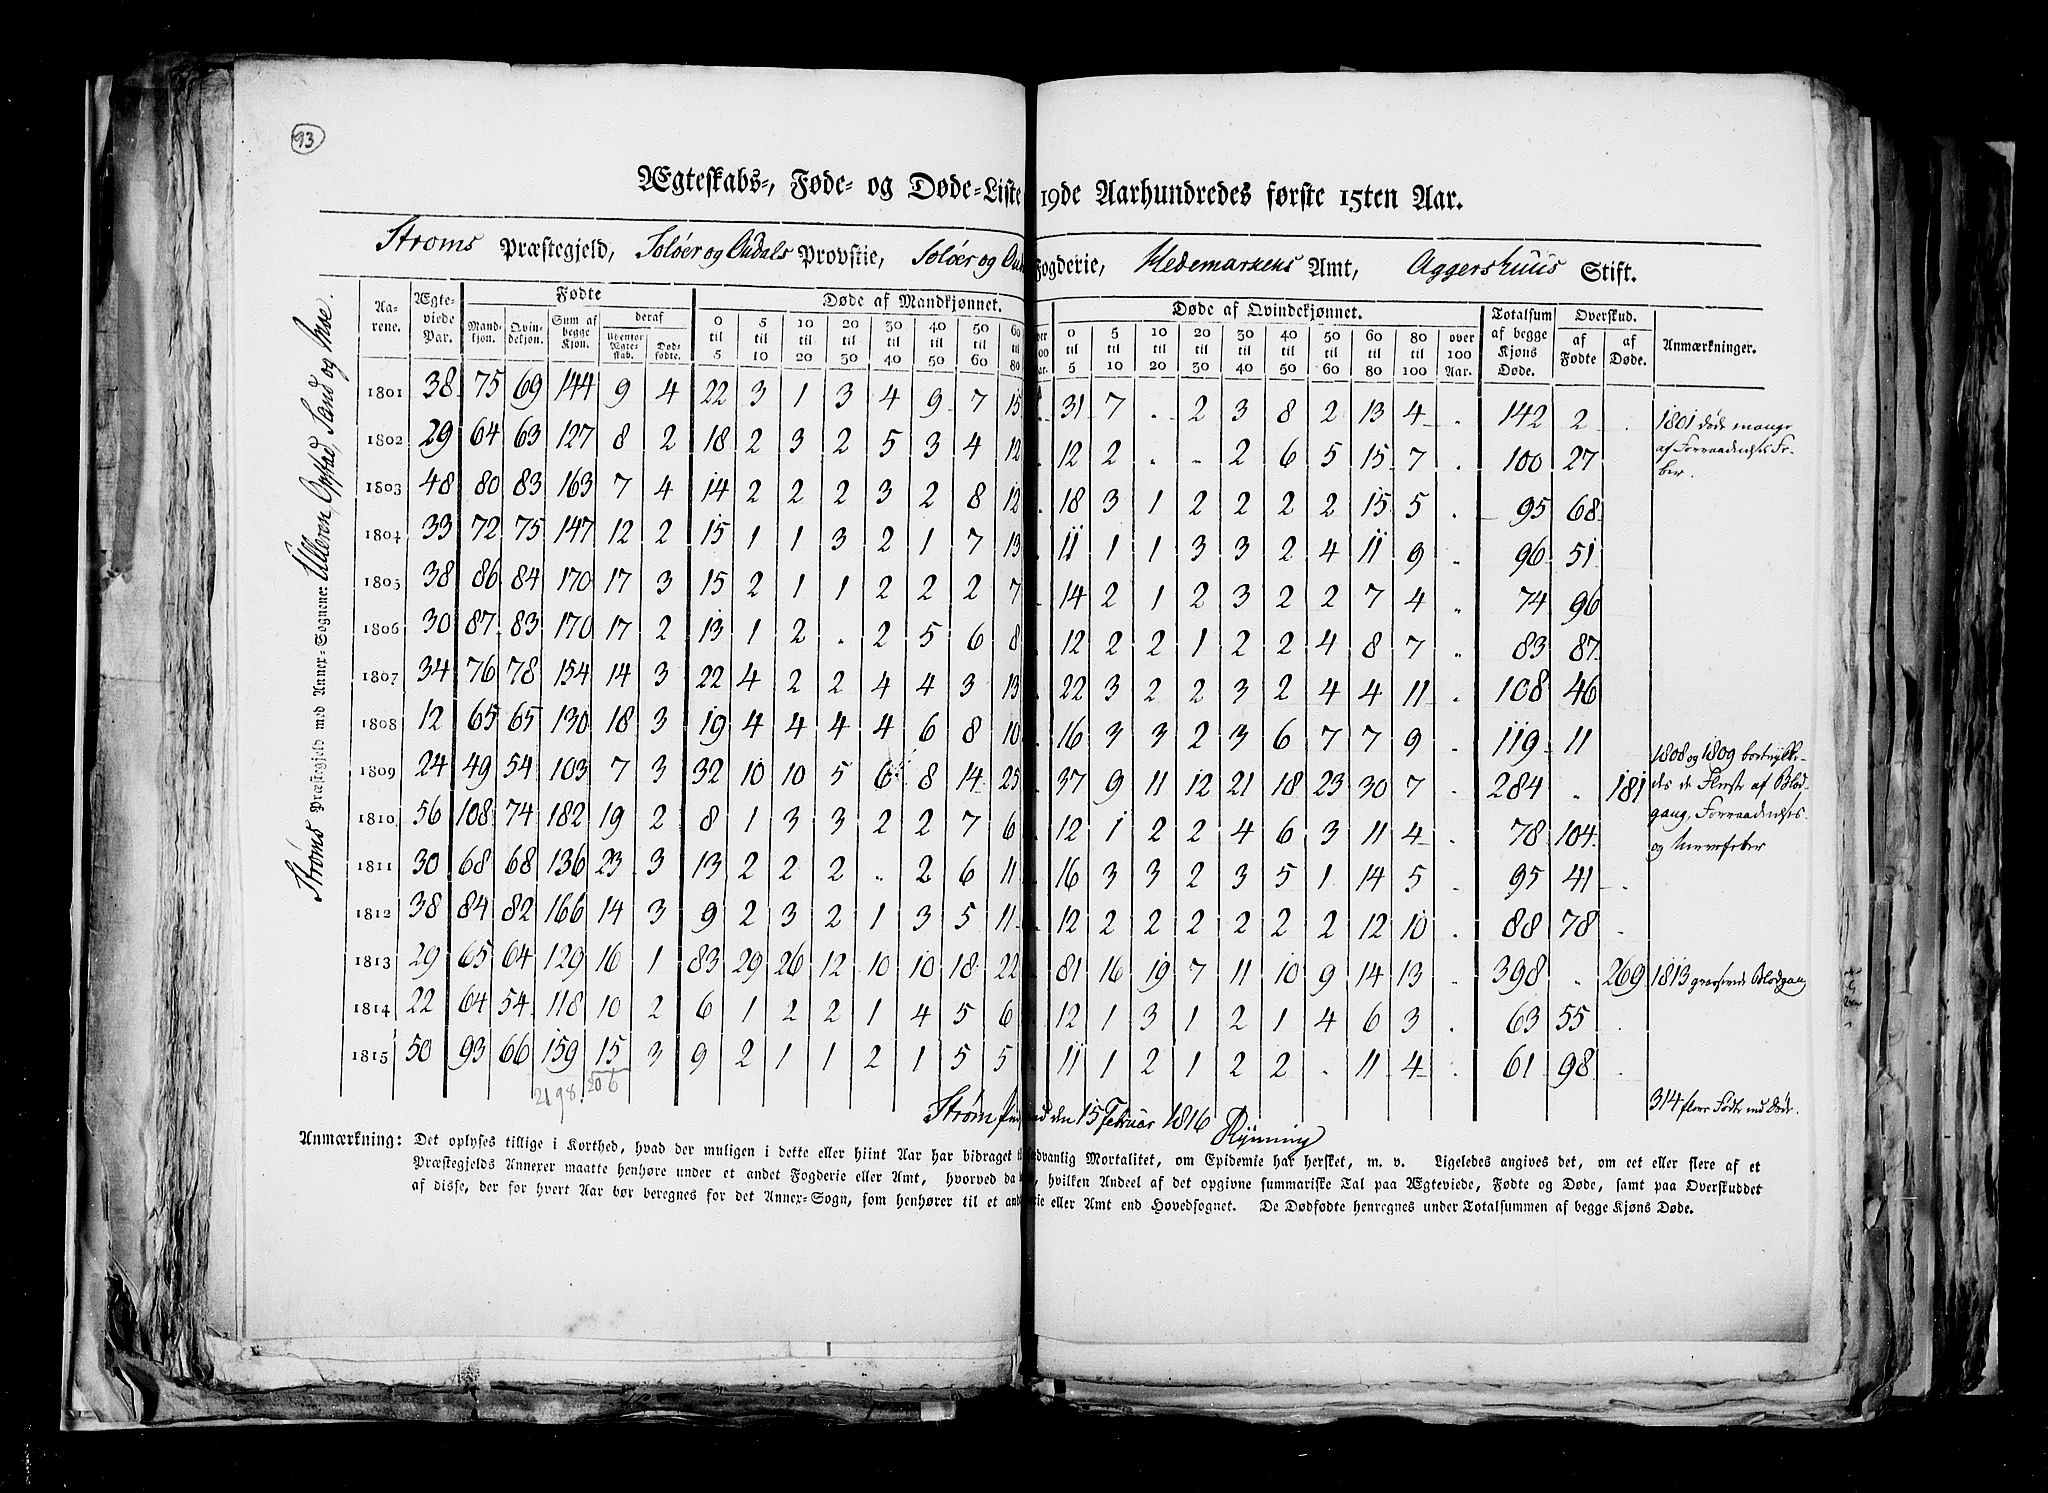 93
Ægteskabs-, Føde- og Døde-Liste 19de Aarhundredes første 15ten Aar.
Strøms Præstegjeld, Soløer og Oudals Provstie, Soløer og Fogderie, Hedemarkens Amt, Aggershuus Stift.
Strøms Præstegjeld med Annex-Sognene: Ulleren, Opstad, Sand og
Aarene. Ægteviede Par. Fødte Døde af Mandkjønnet. Døde af Qvindekjønnet. Totalsum af begge Kjøns Døde. Overskud. Anmærkninger.
Mandkjøn. Qvindekjøn. Sum af begge Kjøn. deraf Udenfor Ægteskab. Dødfødte. 0 til 5 5 til 10 10 til 20 20 til 30 30 til 40 40 til 50 50 til 60 60 til 80 0 til 5 5 til 10 10 til 20 20 til 30 30 til 40 40 til 50 50 til 60 60 til 80 80 til 100 over 100 Aar. af Fødte af Døde.
1801 38 75 69 144 9 4 22 3 1 3 4 9 7 15 31 7 . 2 3 8 2 13 4 . 142 2 . 1801 døde mange
1802 29 64 63 127 8 2 18 2 3 2 5 3 4 12 12 2 . . 2 6 5 15 7 . 100 27 af Forraadnelses Fe-
ber.
1803 48 80 83 163 7 4 14 2 2 2 3 2 8 12 18 3 1 2 2 2 2 15 5 . 95 68
1804 33 72 75 147 12 2 15 1 1 3 2 1 7 13 11 1 1 3 3 2 4 11 9 . 96 51
1805 38 86 84 170 17 3 15 2 1 1 2 2 2 7 14 2 1 2 3 2 2 7 4 . 74 96
1806 30 87 83 170 17 2 13 1 2 . 2 5 6 8 12 2 2 1 2 2 4 8 7 . 83 87
1807 34 76 78 154 14 3 22 4 2 2 4 4 3 13 22 3 2 2 3 2 4 4 11 . 108 46
1808 12 65 65 130 18 3 19 4 4 4 4 6 8 10 16 3 3 2 3 6 7 7 9 . 119 11
1809 24 49 54 103 7 3 32 10 10 5 6 8 14 25 37 9 11 12 21 18 23 30 7 . 284 . 181
1808 og 1809 bortrykke-
des de Fleste af Blod-
gang, Forraadnelses-
og Nervefeber
1810 56 108 74 182 19 2 8 1 3 3 2 2 7 6 12 1 2 2 4 6 3 11 4 . 78 104
1811 30 68 68 136 23 3 13 2 2 2 . 2 6 11 16 3 3 2 3 5 1 14 5 . 95 41 .
1812 38 84 82 166 14 3 9 2 3 2 1 3 5 11 12 2 2 2 2 2 2 12 10 . 88 78 .
1813 29 65 64 129 16 1 83 29 26 12 10 10 18 22 81 16 19 7 11 10 9 14 13 . 398 . 269 1813 grasserede Blodgang
1814 22 64 54 118 10 2 6 1 2 2 1 4 5 6 12 1 3 1 2 1 4 6 3 . 63 55 .
1815 50 93 66 159 15 3 9 2 1 1 2 1 5 5 11 1 2 1 2 2 . 11 4 . 61 98 .
2198. 206
314 flere Fødte end Døde.
Strøm den 15 Februar 1816 Rynning
Anmærkning: Det oplyses tillige i Korthed, hvad der muligen i dette eller hiint Aar har bidraget til Mortalitet, om Epidemie har hersket, m. v. Ligeledes angives det, om eet eller flere af et
Præstegjelds Annexer maatte henhøre under et andet Fogderie eller Amt, hvorved da hvilken Andeel af det opgivne summariske Tal paa Ægteviede, Fødte og Døde, samt paa Overskuddet
af disse, der for hvert Aar bør beregnes for det Annex-Sogn, som henhører til et eller Amt end Hovedsognet. De Dødfødte henregnes under Totalsummen af begge Kjøns Døde.